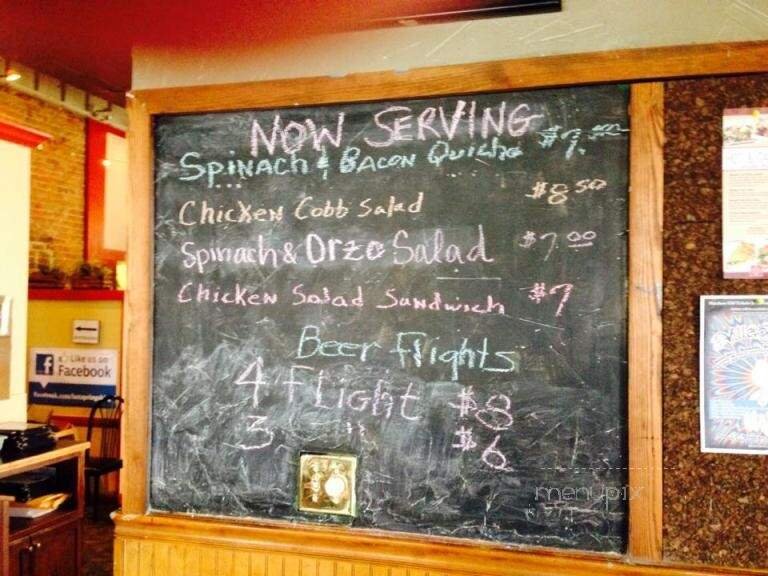 NOW SERVING
Spinach & Bacon Quiche $7.00
Chicken Cobb Salad $8.50
Spinach & Orzo Salad $7.00
Chicken Salad Sandwich $7
Beer Flights
4 Flight $8
3 " $6
Like us on
Facebook
menupix